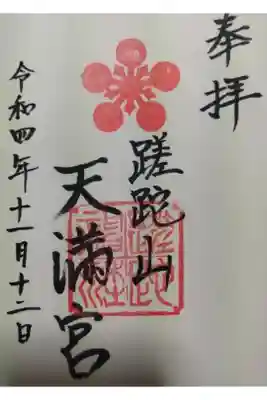 奉拝
蹉跎山
天満宮
令和四年十一月十二日